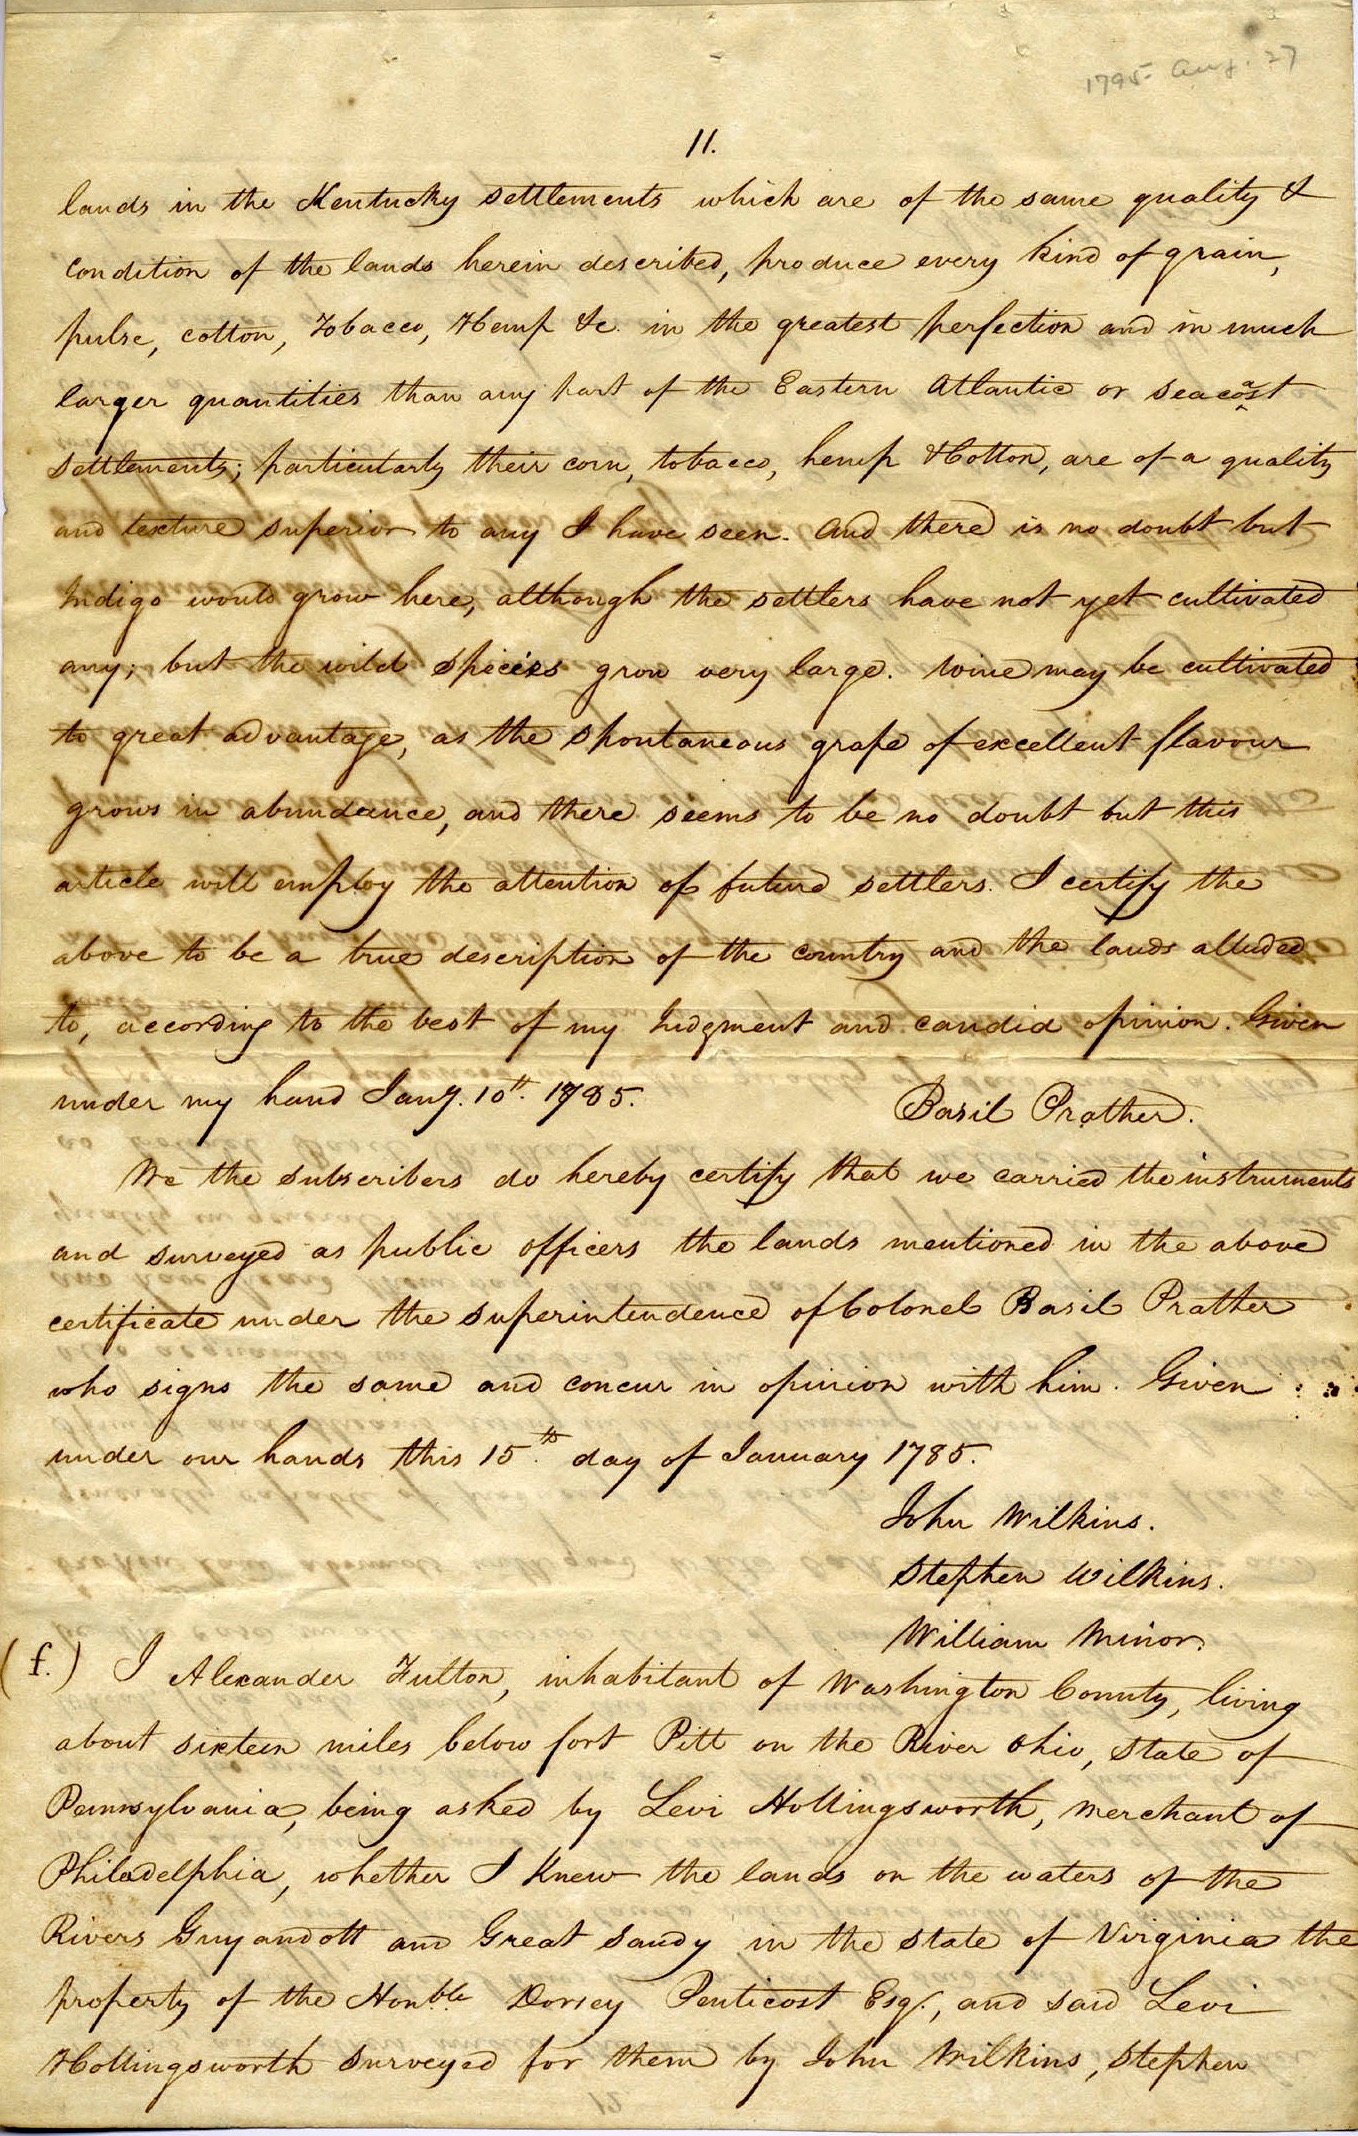 1795 Aug. 27
11.
lands in the Kentucky settlements which are of the same quality &
condition of the lands herein described, produce every kind of grain,
pulse, cotton, Tobacco, Hemp &c. in the greatest perfection and in much
larger quantities than any part of the Eastern Atlantic or seacoast
settlements; particularly their corn, tobacco, hemp & Cotton, are of a quality
and texture superior to any I have seen. And there is no doubt but
Indigo would grow here, although the settlers have not yet cultivated
any; but the wild species grow very large. Wine may be cultivated
to great advantage, as the spontaneous grape of excellent flavour
grows in abundance, and there seems to be no doubt but this
article will employ the attention of future settlers. I certify the
above to be a true description of the country and the lands alluded
to, according to the best of my Judgment and candid opinion. Given
under my hand Jany. 10th. 1785.
Basil Prather.
We the subscribers do hereby certify that we carried the instruments
and surveyed as public officers the lands mentioned in the above
certificate under the superintendence of Colonel Basil Prather
who signs the same and concur in opinion with him. Given
under our hands this 15th. day of January 1785.
John Wilkins.
Stephen Wilkins.
William Minor.
(f.) I Alexander Fulton, inhabitant of Washington County, living
about sixteen miles below fort Pitt on the River Ohio, State of
Pennsylvania, being asked by Levi Hollingsworth, merchant of
Philadelphia, whether I Knew the lands on the waters of the
Rivers Guyandott and Great Sandy in the state of Virginia the
property of the Honble. Dorsey Penticost Esq., and said Levi
Hollingsworth surveyed for them by John Wilkins, Stephen
12